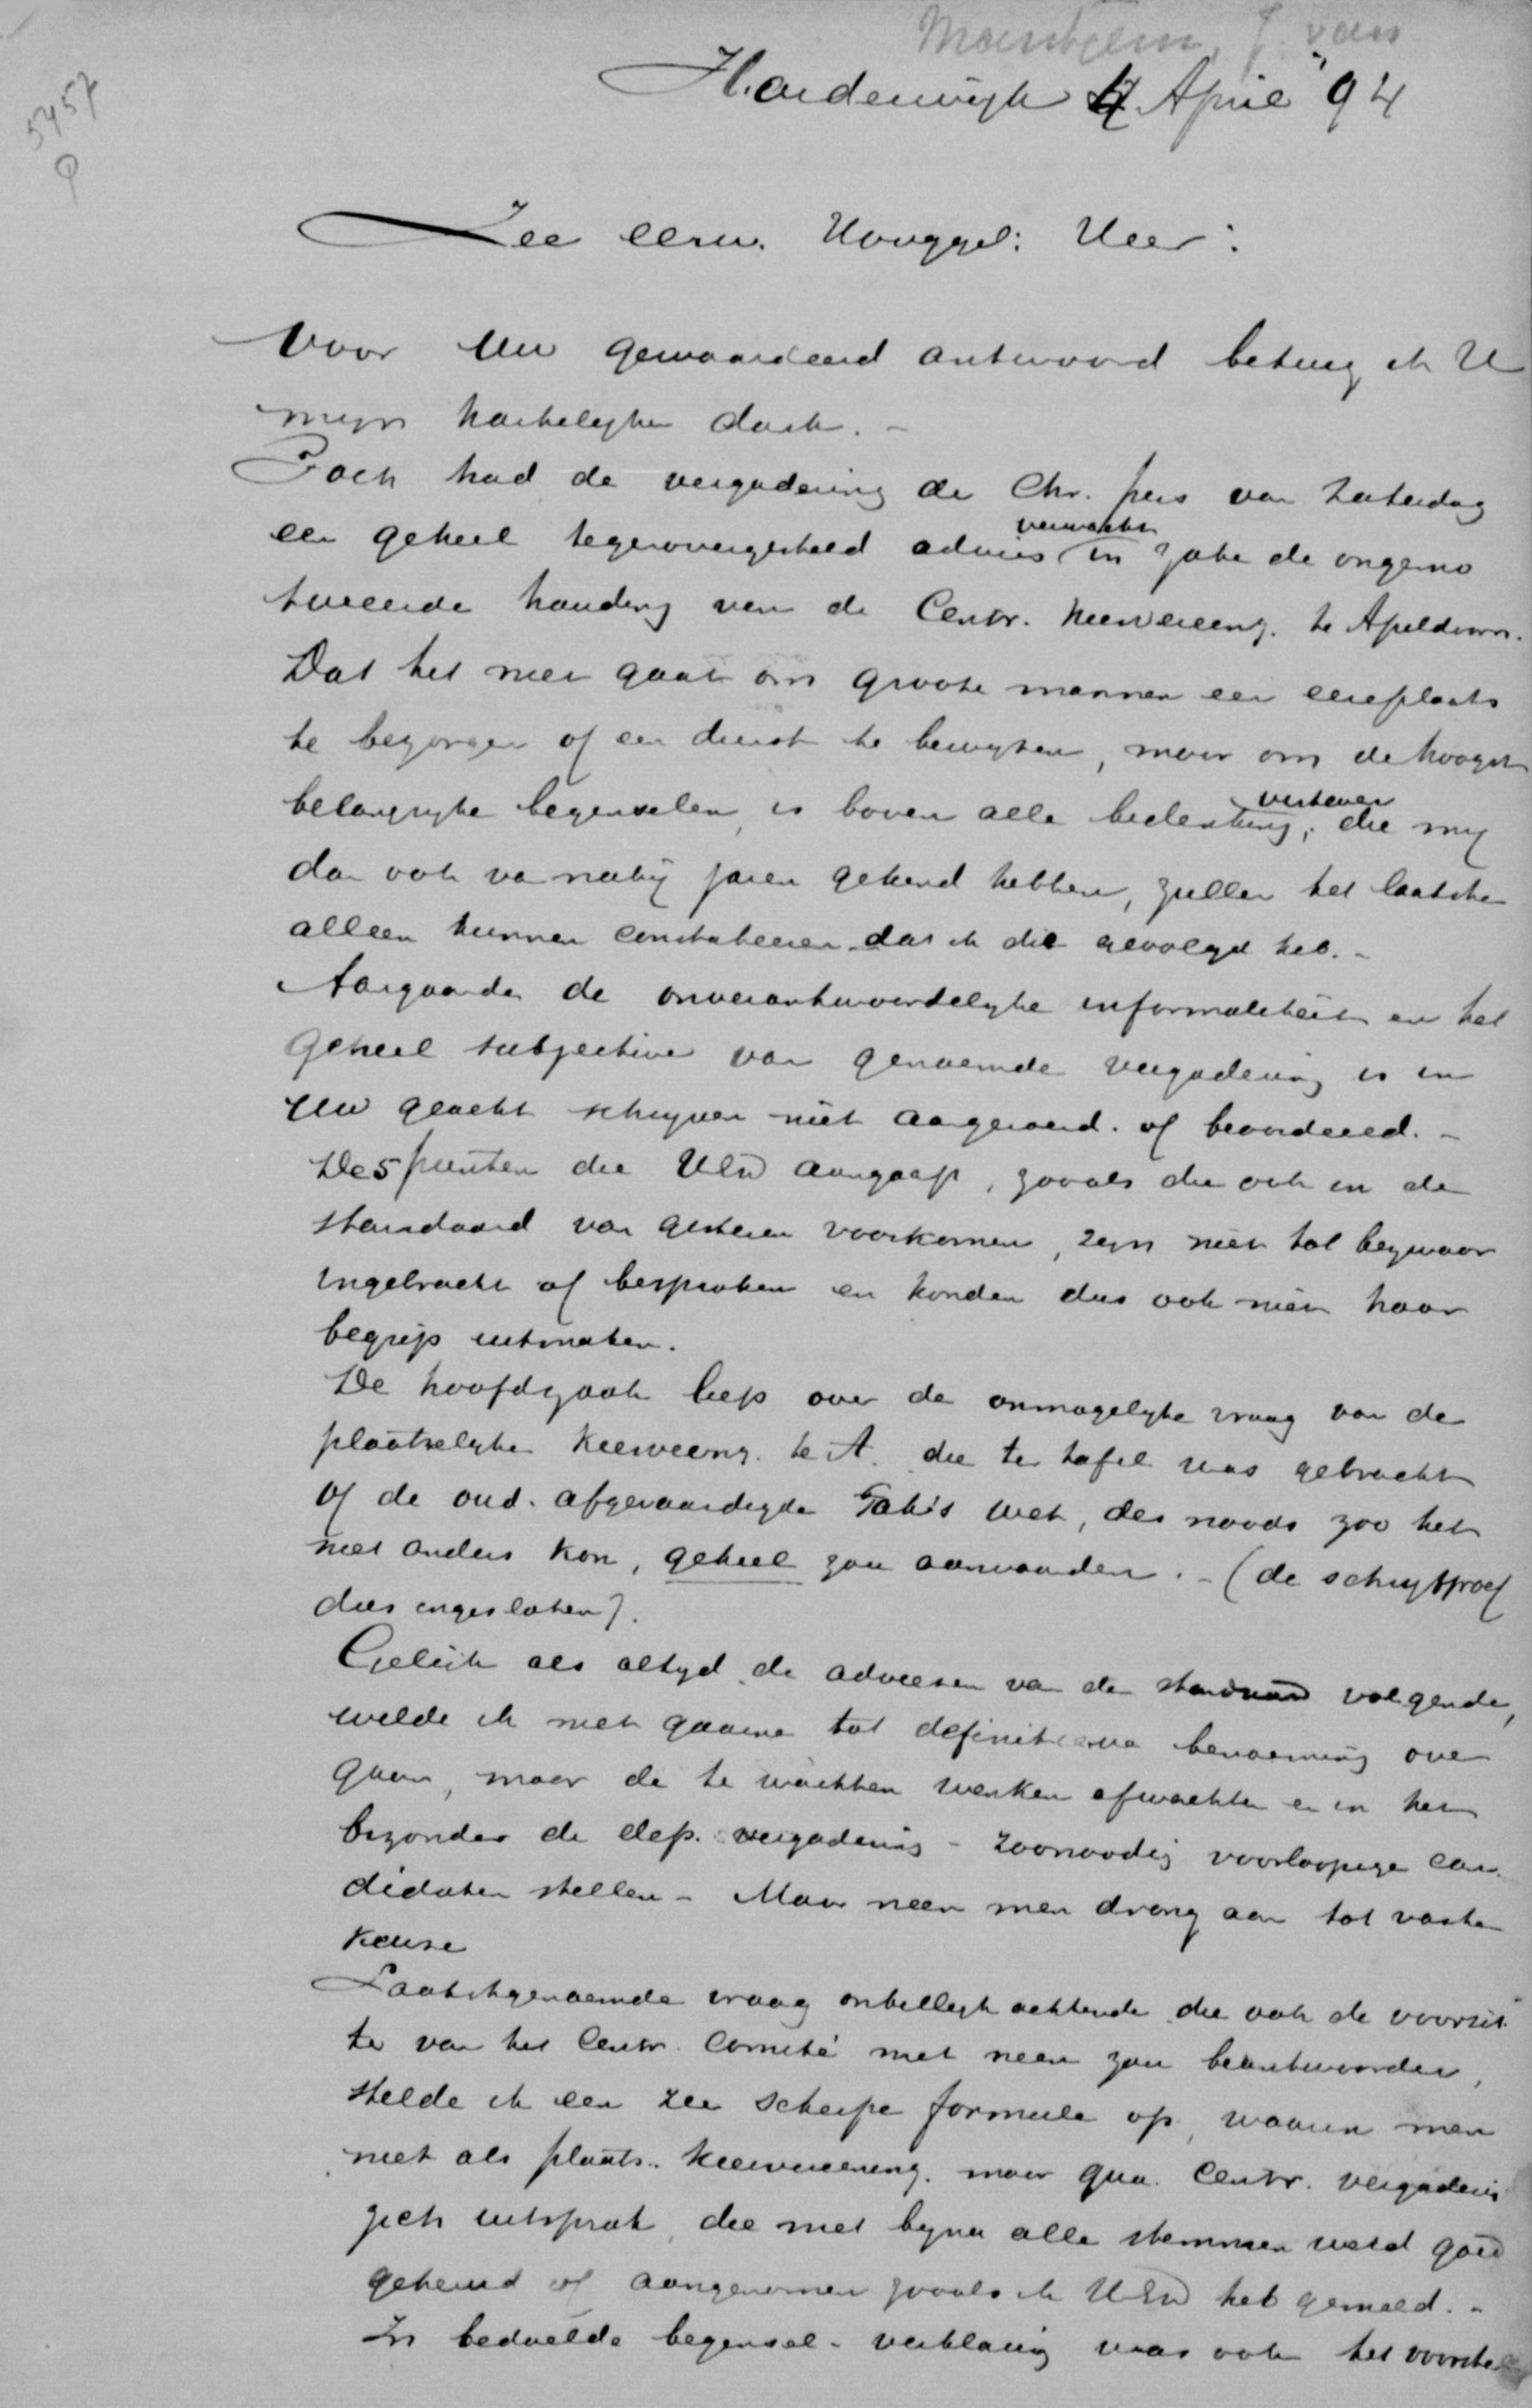 5457
Harderwijk 4 April "94
Zee eerw. Hooggel: Heer:
Voor Uw gewaardeerd antwoord betuig ik U
mijn hartelyken dank. -
Toch had de vergadering der Chr. pers van Zaterdag
verwacht
een geheel tegenovergesteld advies in zake de ongemo
tiveerde houding van de Centr. Kiesvereeng. te Apeldoorn.
Dat het niet gaat om groote mannen een eereplaats
te bezorgen of een dienst te bewyzen, maar om de hoogst
belangryke beginselen, is boven alle bedenking verheven; die my
dan ook van naby jaren gekend hebben, zullen het laatste
alleen kunnen constateeren dat ik die gevolgd heb. -
Aangaande de onverantwoordelyke informaliteit en het
geheel subjective van genoemde vergadering is in
Uw geacht schryven niet aangeroerd of beoordeeld. -
De 5 punten die UEd aangaaf, zooals die ook in de
standaard van gisteren voorkomen, zyn niet tot bezwaar
ingebracht of besproken en konden dus ook niet haar
begrip uitmaken.
De hoofdzaak liep over de onmogelyke vraag van de
plaatselyke Kiesvereeng. te A. die ter tafel was gebracht
of de oud-afgevaardigde Tak's wet, des noods zoo het
niet anders kon, geheel zou aanvaarden. - (de schryfproef
dus ingesloten).
Gelyk als altyd de adviesen van de standaard volgende,
wilde ik niet gaarne tot definitieve benoeming over
gaan, maar de te wachten wenken afwachten en in het
byzonder de dep. vergadering - zoonoodig voorloopige can-
didaten stellen - Maar neen men drong aan tot vaste
keuze
Laatstgenoemde vraag onbillyk achtende die ook de voorzit
ter van het Centr. Comité met neen zou beantwoorden,
stelde ik een zeer scherpe formule op, waarin men
niet als plaats. kiesvereeneng. maar qua Centr. vergadering
zich uitsprak, die met byna alle stemmen werd goed
gekeurd of aangenomen zooals ik UEd heb gemeld. -
In bedoelde beginsel-verklaring was ook het voorste